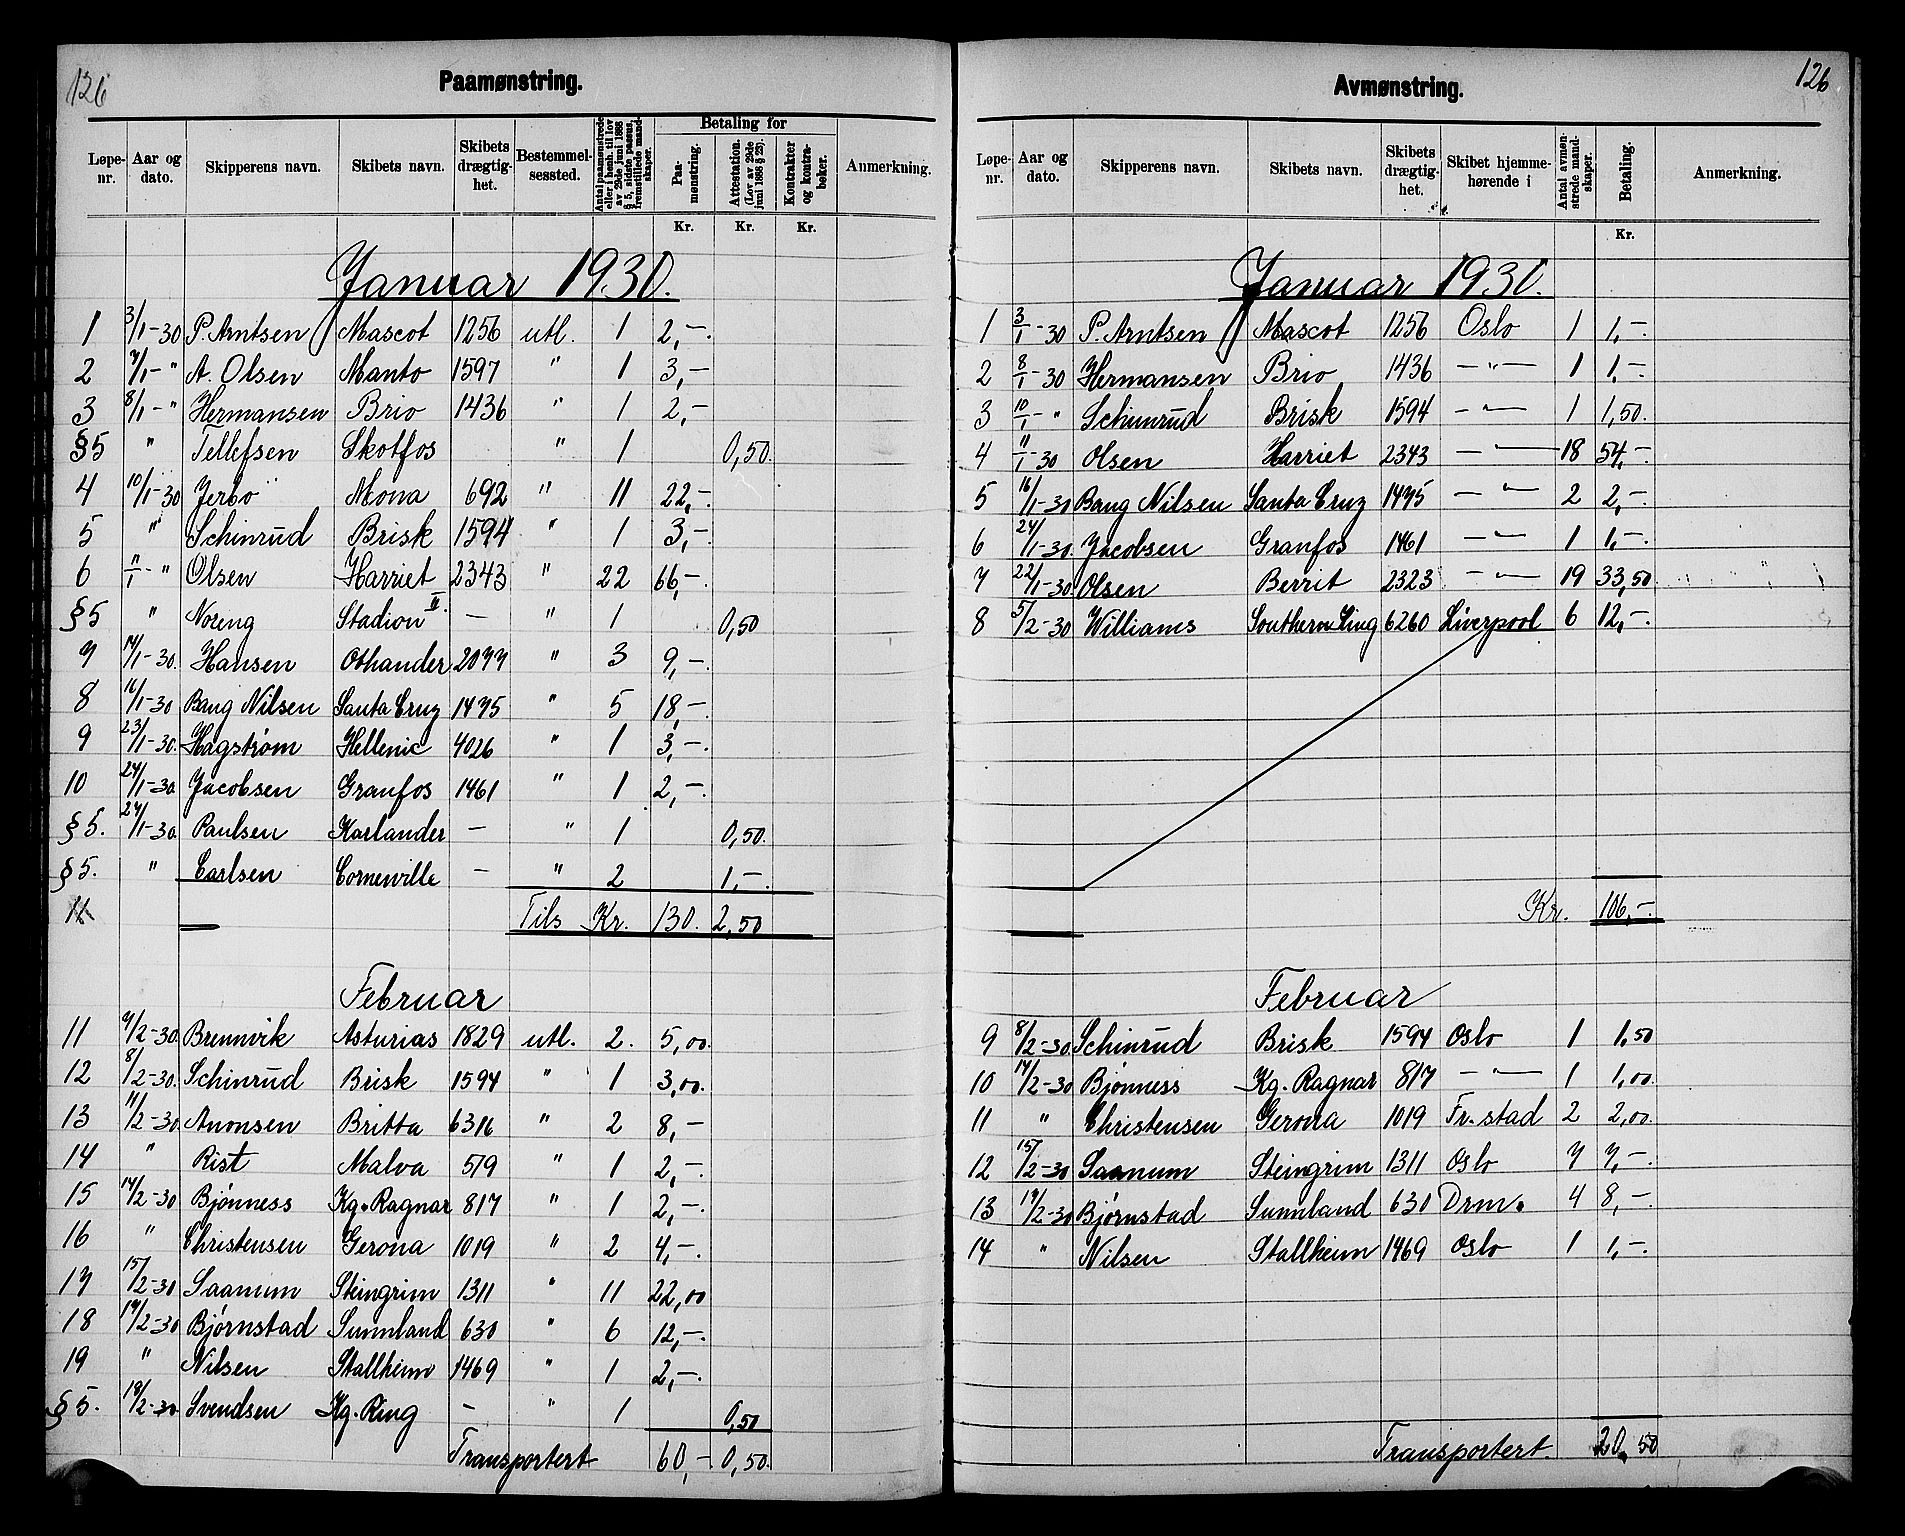 126
Paamønstring.
Løpe-nr. Aar og dato. Skipperens navn. Skibets navn. Skibets drægtighet. Bestemmelsessted. Antal paamønstrede eller i henh. til lov av 29de juni 1888 § 5, sidste passus, fremstillede mandskaper. Betaling for Paamønstring. Attestation. (Lov av 29de juni 1888 § 23). Kontrakter og kontrabøker. Anmerkning.
Kr. Kr. Kr.
Januar 1930.
1 3/1-30 P. Arntsen Mascot 1256 utl. 1 2,-.
2 7/1-" A. Olsen Manto 1597 " 1 3,-
3 8/1-" Hermansen Brio 1436 " 1 2,-
§5 " Tellefsen Skotfos " 1 0,50.
4 10/1-30 Jerbo Mona 692 " 11 22,-.
5 " Schinrud Brisk 1594 " 1 3,-.
6 11/1-" Olsen Harriet 2343 " 22 66,-.
§5 " Noreng Stadion II. - " 1 0,50
7 14/1-30. Hansen Othander 2077 " 3 9,-.
8 16/1-30 Bang Nilsen Santa Cruz 1475 " 5 18,-.
9 23/1-30. Hagstrøm Hellenic 4026 " 1 3,-.
10 24/1-30. Jacobsen Granfos 1461 " 1 2,-.
§5. 24/1-30. Paulsen Karlander - " 1 0,50.
§5. " Carlsen Corneville - " 2 1,-.
11 Tils Kr. 130. 2,50
Februar
11 7/2-30. Brennvik Asturias 1829 utl. 2. 5,00.
12 8/2-30. Schinrud Brisk 1594 " 1 3,00.
13 11/2-30. Anonsen Britta 6316 " 2 8,-
14 " Rist Malva 519 " 1 2,-.
15 14/2-30 Bjønness Kg. Ragnar 817 " 1 2,-.
16 " Christensen Gerona 1019 " 2 4,-.
17 15/2-30 Saanum Steingrim 1311 " 11 22,00
18 17/2-30 Bjørnstad Sunnland 630 " 6 12,-.
19 " Nilsen Stallheim 1469 " 1 2,-.
§5. 18/2-30 Svendsen Kg. Ring - " 1 0,50
Transportert 60,- 0,50.
126
Avmønstring.
Løpe-nr. Aar og dato. Skipperens navn. Skibets navn. Skibets drægtighet. Skibet hjemmehørende i Antal avmønstrede mandskaper. Betaling. Anmerkning.
Kr.
Januar 1930.
1 3/1-30 P. Arntsen Mascot 1256 Oslo 1 1,-.
2 8/1-30 Hermansen Brio 1436 -"- 1 1,-.
3 10/1-" Schinrud Brisk 1594 -"- 1 1,50.
4 11/1-30 Olsen Harriet 2343 -"- 18 54,-.
5 16/1-30 Bang Nilsen Santa Cruz 1475 -"- 2 2,-.
6 24/1-30. Jacobsen Granfos 1461 -"- 1 1,-.
7 22/1-30. Olsen Berrit 2323 -"- 19 33,50
8 5/2-30 Williams 6260 Liverpool 6 12,-.
Kr. 106,-.
Februar
9 8/2-30. Schinrud Brisk 1594 Oslo 1 1,50
10 14/2-30 Bjønness Kg. Ragnar 817 -"- 1 1,00.
11 " Christensen Gerona 1019 Fr.stad 2 2,00.
12 15/2-30 Saanum Steingrim 1311 Oslo 7 7,-.
13 17/2-30 Bjørnstad Sunnland 630 Drm. 4 8,-
14 " Nilsen Stallheim 1469 Oslo 1 1,-.
Transportert. 20,50